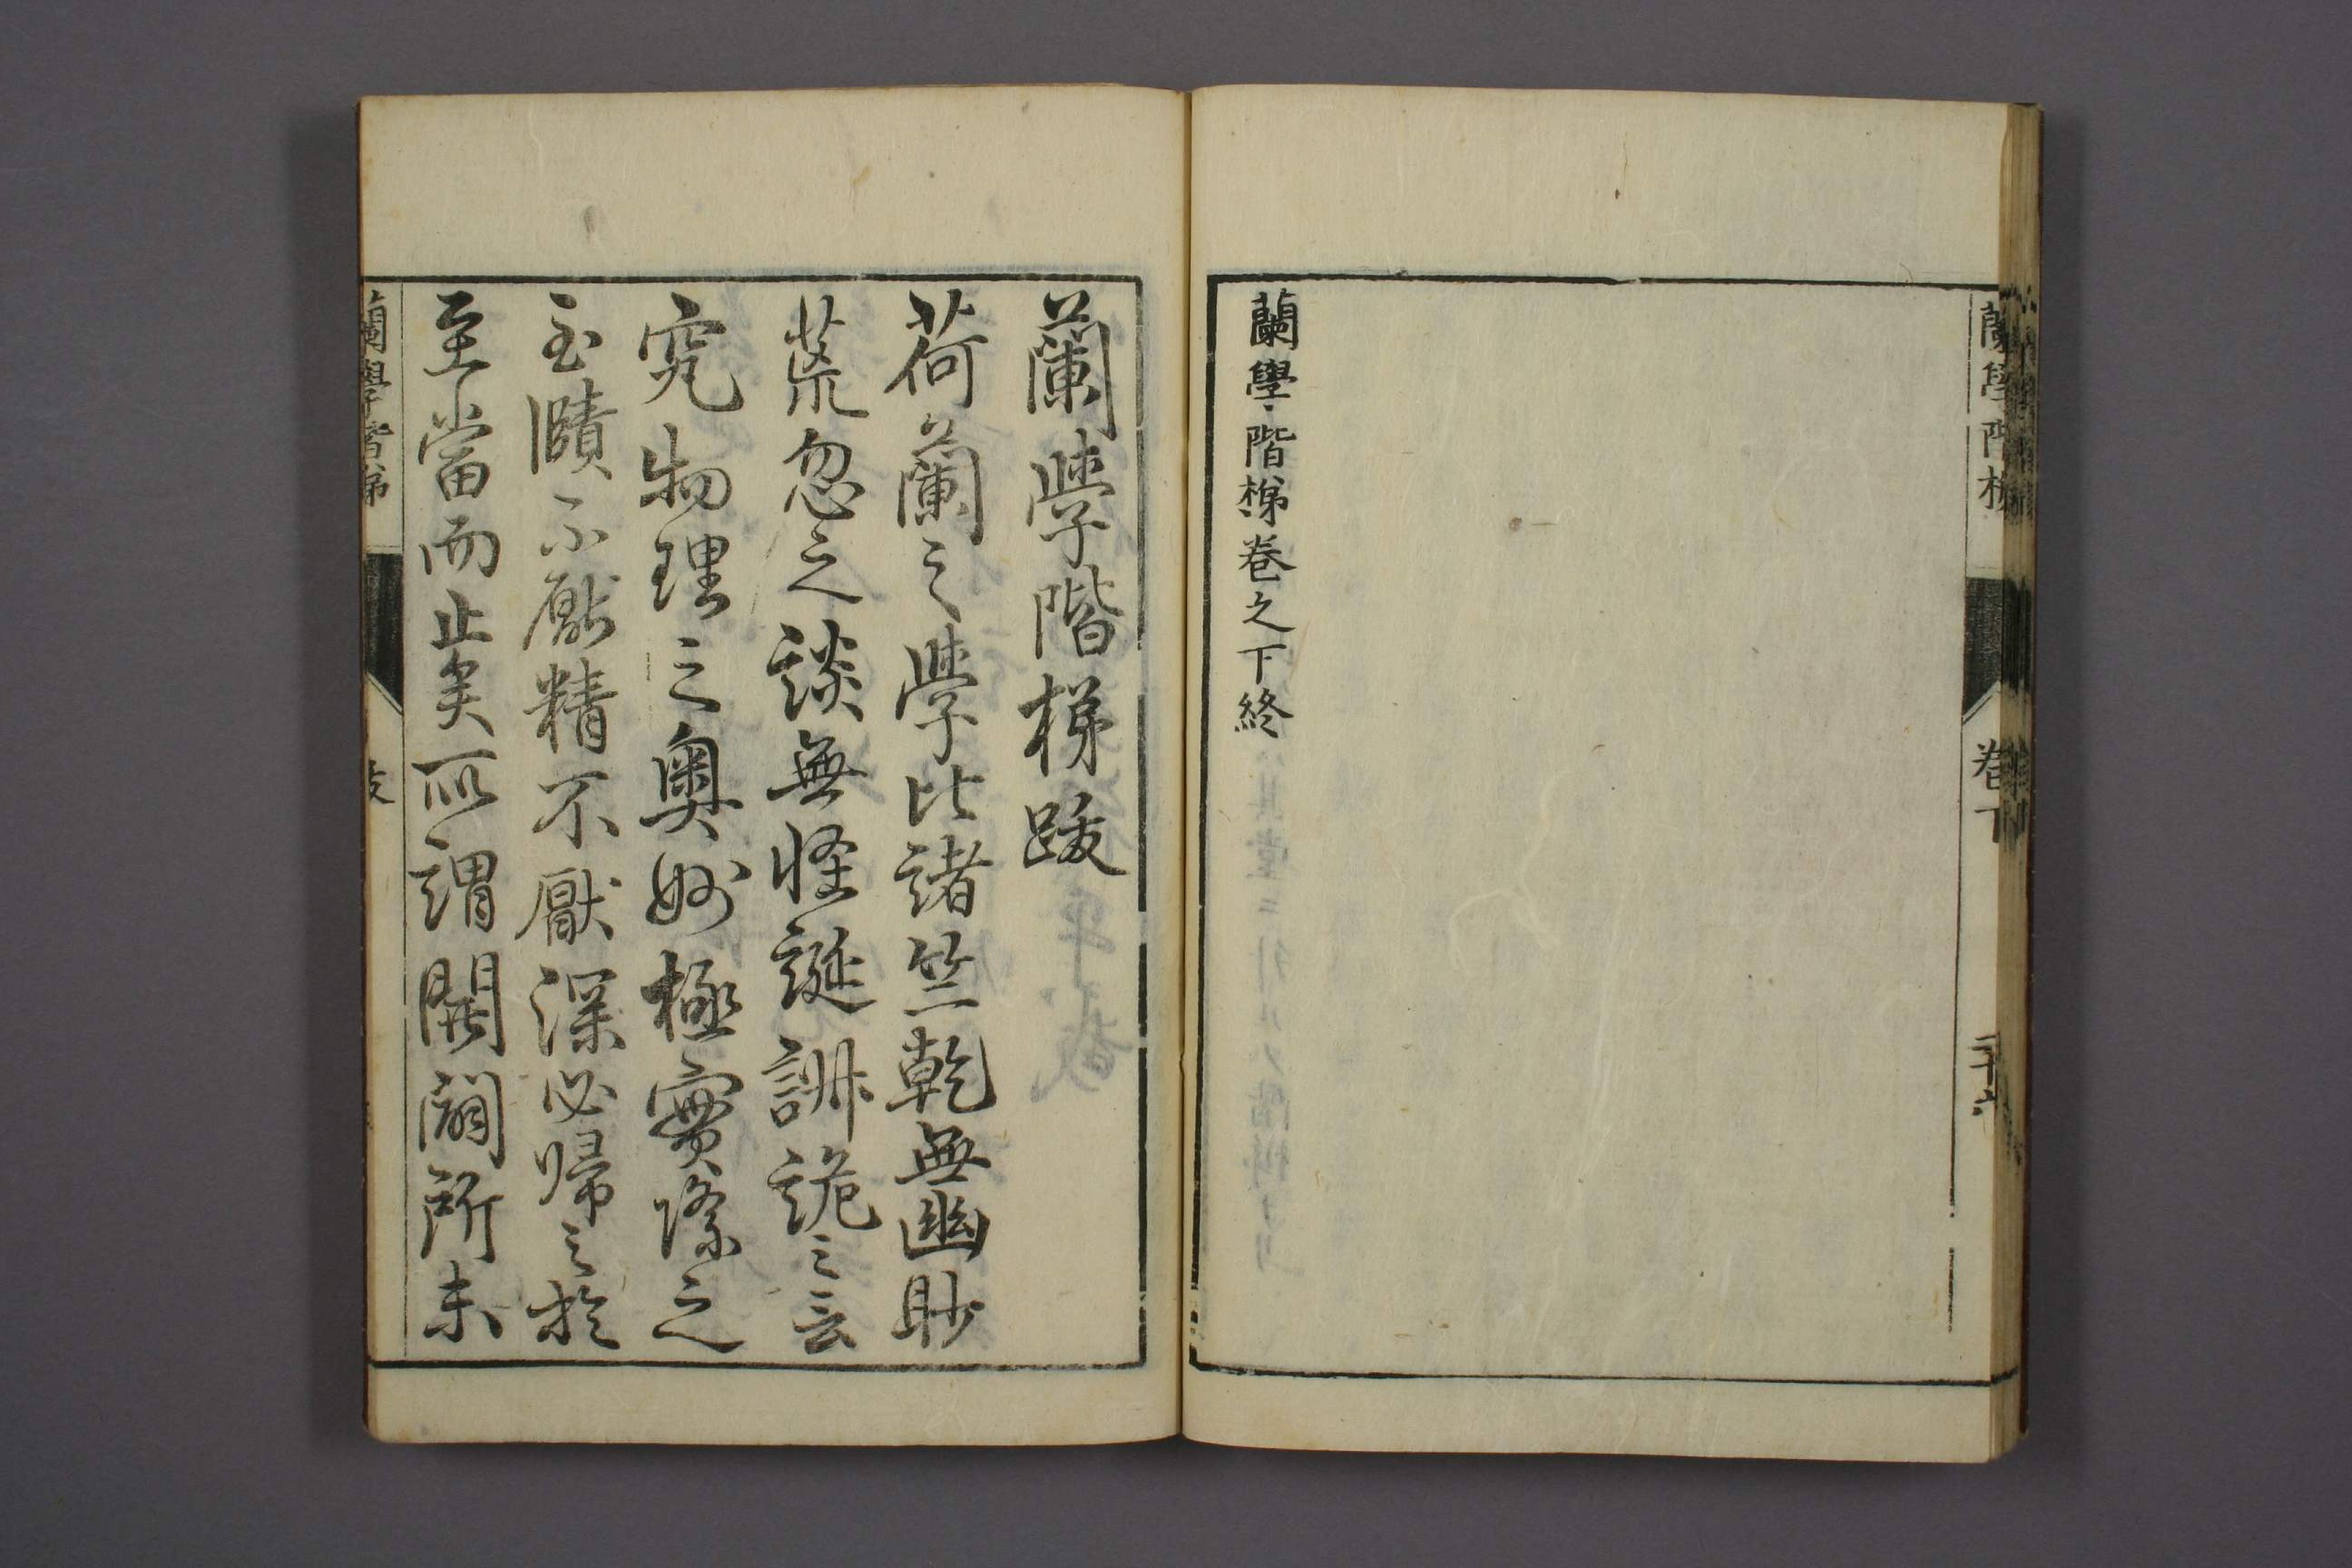 蘭學階梯
卷下
二十六
蘭學階梯卷之下終
蘭學階梯跋
荷蘭之學比諸竺乾無幽眇
荒忽之談無怪誕詭之言
究物理之奧妙極實際之
至賾不厭精不厭深必歸之於
至當而止矣所謂開闢所未
蘭學階梯
跋